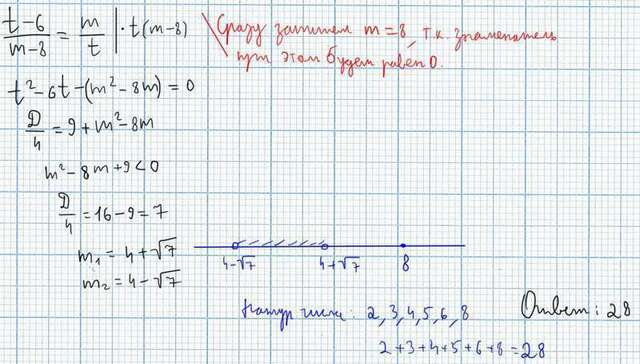 (t-6)/(m-8) = m/t | · t(m-8)
Сразу запишем m = 8, т.к. знаменатель
при этом будет равен 0.
t² - 6t - (m² - 8m) = 0
D/4 = 9 + m² - 8m
m² - 8m + 9 < 0
D/4 = 16 - 9 = 7
m₁ = 4 + √7
m₂ = 4 - √7
4-√7 4+√7 8
Натур числа: 2, 3, 4, 5, 6, 8
2 + 3 + 4 + 5 + 6 + 8 = 28
Ответ: 28